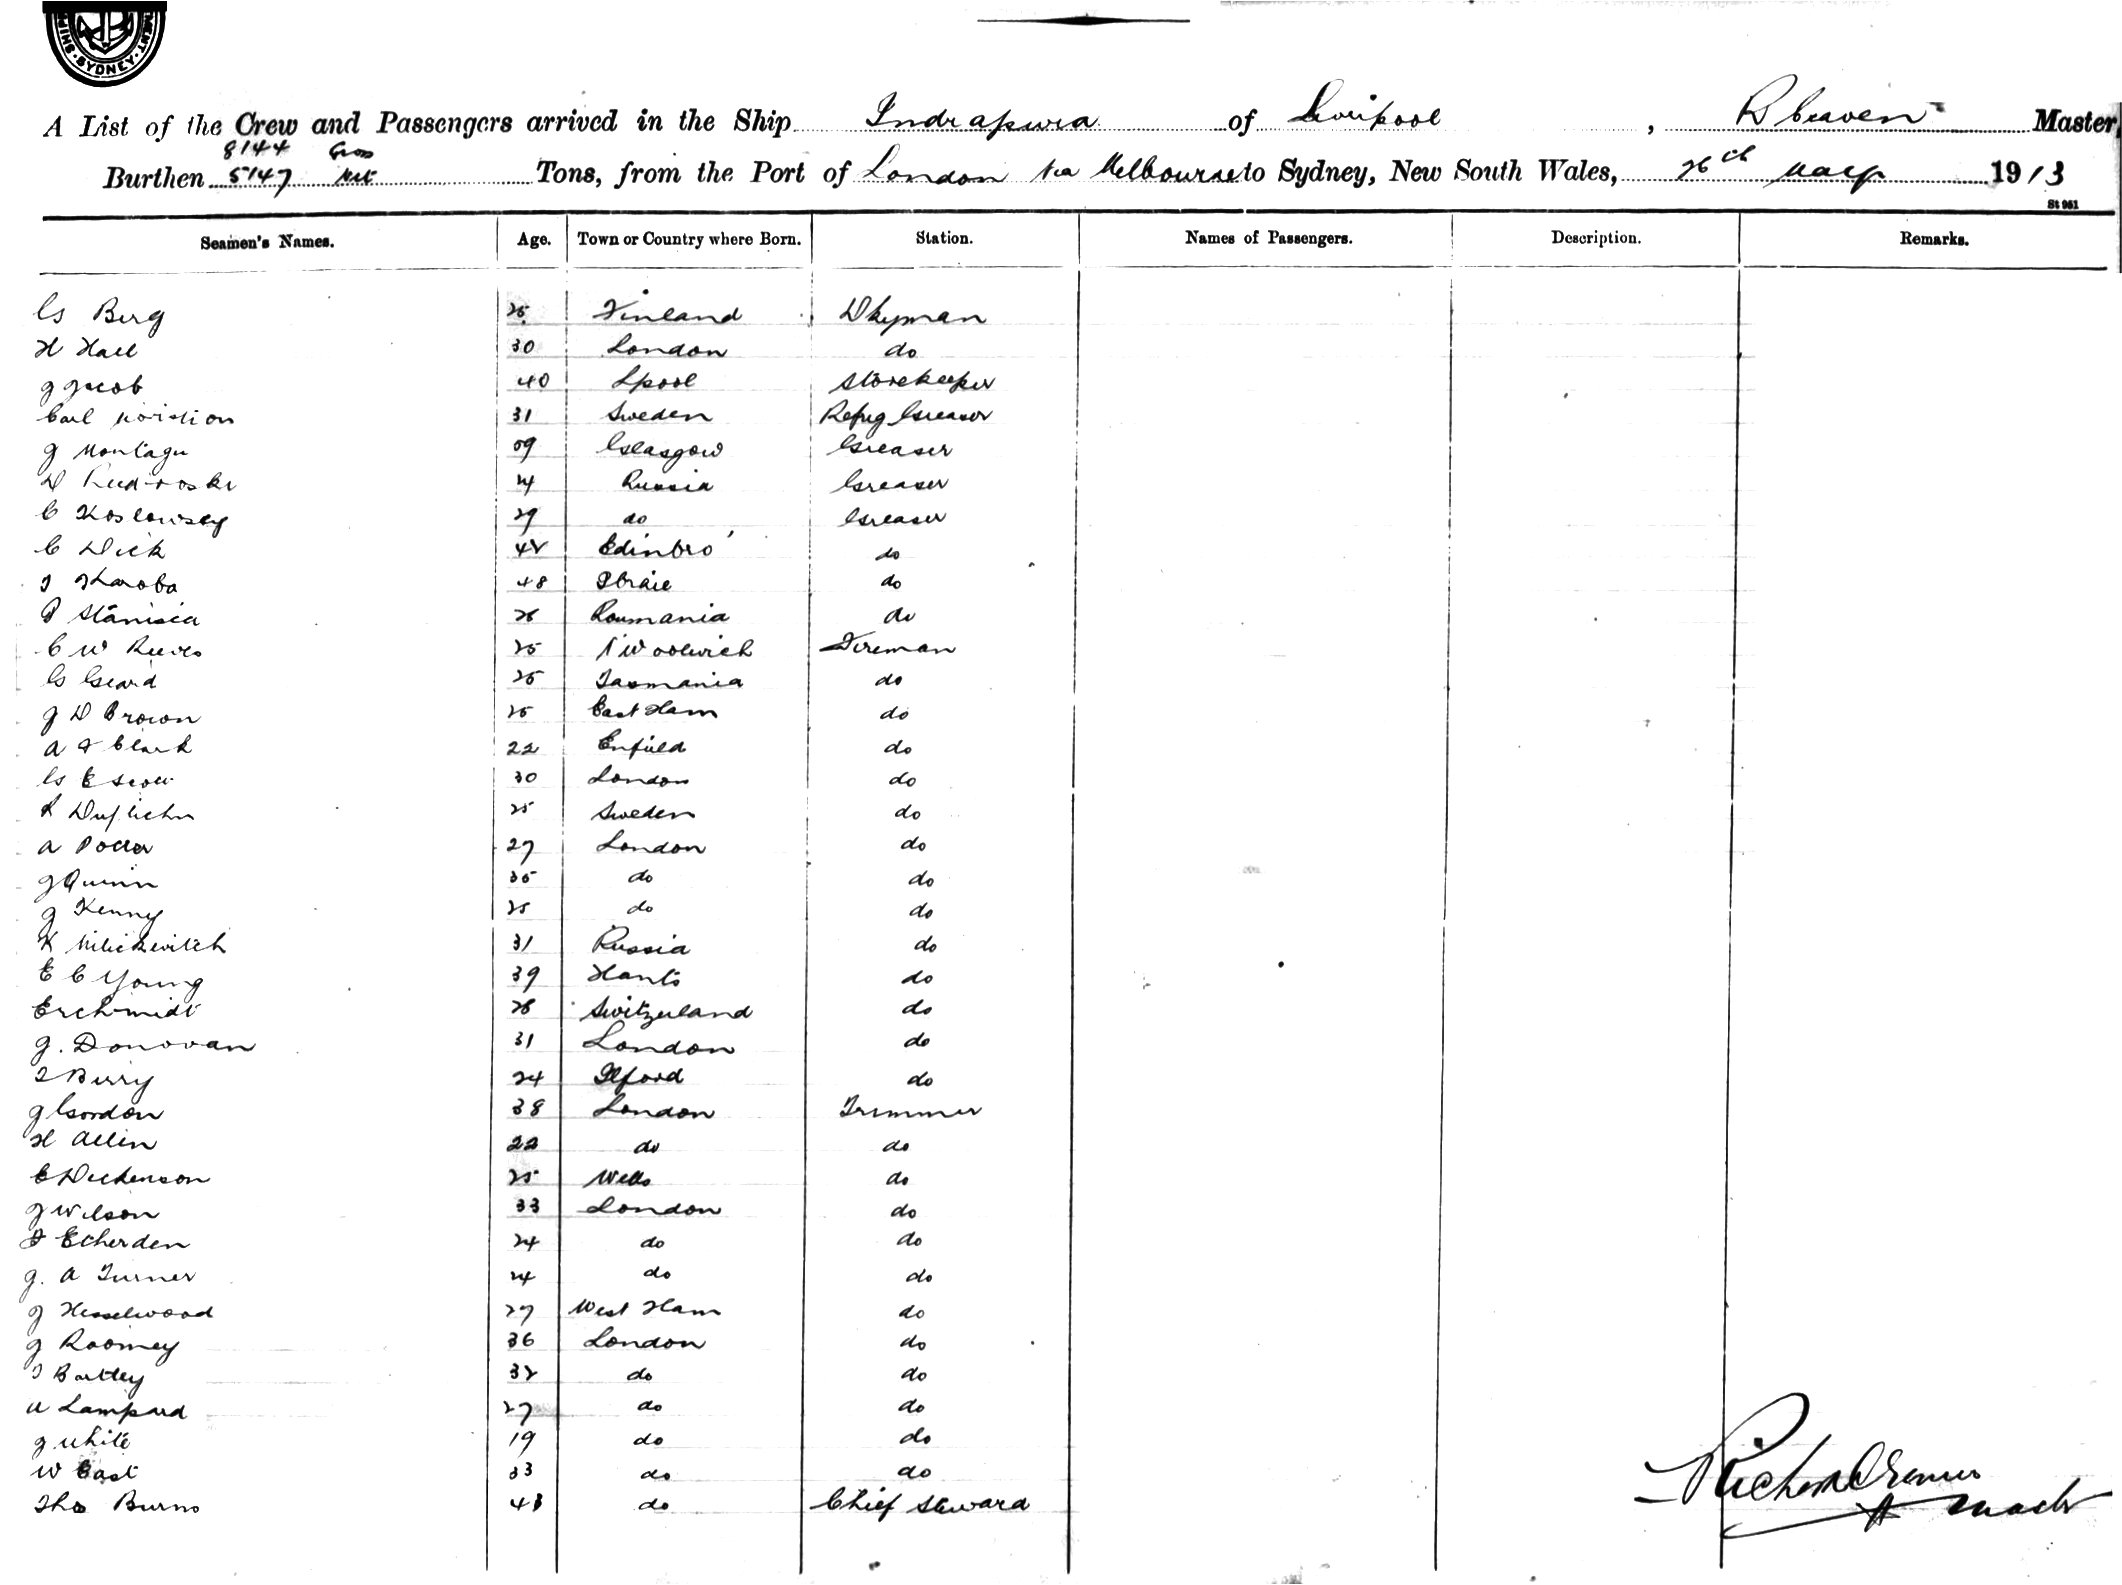 SYDNEY
A List of the Crew and Passengers arrived in the Ship Indrapura of Liverpool, Master,
8144 Gross
Burthen 5147 Net Tons, from the Port of London via Melbourne to Sydney, New South Wales, 26th 1913
St 961
Seamen's Names. Age. Town or Country where Born. Station. Names of Passengers. Description. Remarks.
G Berg 25 Finland Dkyman
H Hall 30 London do
J Jacob 40 Lpool Storekeeper
Carl 31 Sweden Refrig Greaser
J Montagu 59 Glasgow Greaser
24 Russia Greaser
C Koslowsky 29 do Greaser
C Dick 42 Edinbro' do
48 do
P Stanisia 26 Roumania do
C W Reeves 25 N Woolwich Fireman
G Geard 25 Tasmania do
J D Brown 25 East Ham do
A F Clark 22 Enfield do
G E 30 London do
25 Sweden do
A Potter 27 London do
J Quinn 35 do do
J Kenny 25 do do
K Milickevitch 31 Russia do
E C Young 39 Hants do
E Schmidt 26 Switzerland do
J. Donovan 31 London do
Berry 24 Ilford do
J Gordon 38 London Trimmer
H Allen 22 do do
E Dickenson 25 Wells do
J Wilson 33 London do
F Etherden 24 do do
J. A Turner 24 do do
J Hesselwood 27 West Ham do
J Roomey 36 London do
T Bartley 32 do do
A Lampard 27 do do
J White 19 do do
W East 33 do do
Thos Burns 43 do Chief Steward